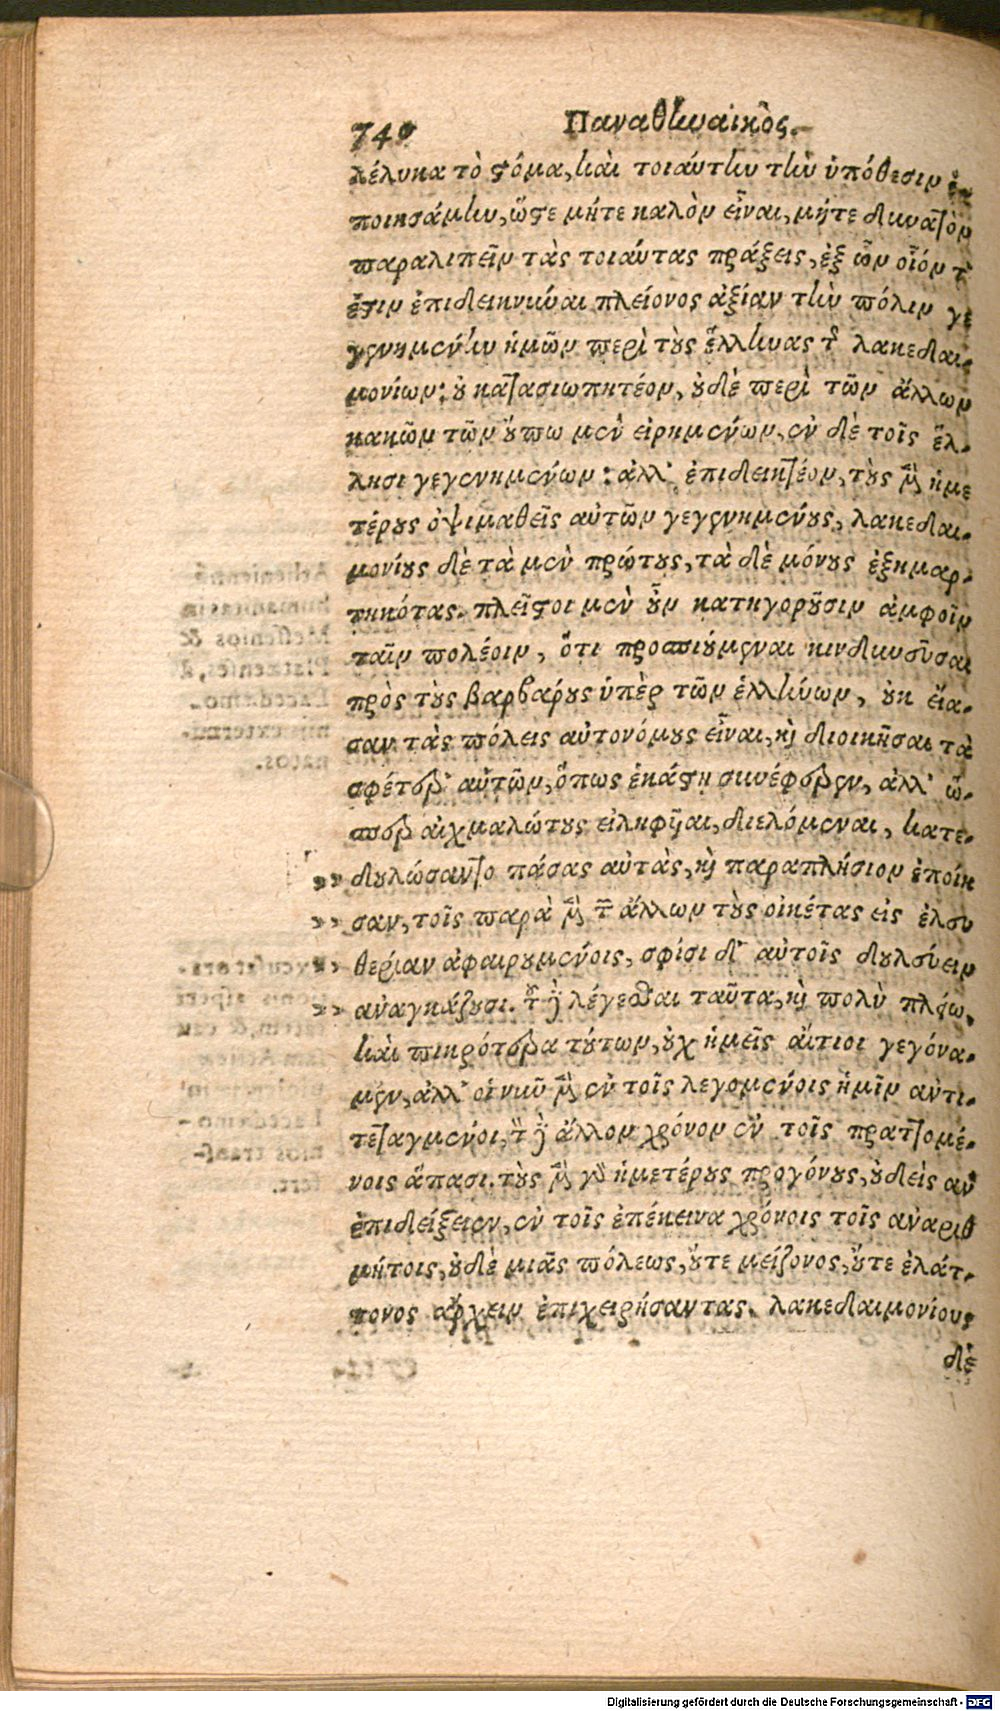 740 Παναθηναϊκὸς.
λέλυκα τὸ στόμα, καὶ τοιαύτην τὴν ὑπόθεσιν ἐ-
ποιησάμην, ὥστε μήτε καλὸν εἶναι, μήτε δυνατὸν
παραλιπεῖν τὰς τοιαύτας πράξεις, ἐξ ὧν οἷόν τ'
ἐστιν ἐπιδεικνύναι πλείονος ἀξίαν τὴν πόλιν γε
γενημένην ἡμῶν περὶ τοὺς ἕλληνας τῶν λακεδαι-
μονίων: οὐ κατασιωπητέον, οὐδὲ περὶ τῶν ἄλλων
κακῶν τῶν οὔπω μὲν εἰρημένων, ἐν δὲ τοῖς ἕλ-
λησι γεγενημένων: ἀλλ' ἐπιδεικτέον, τοὺς μὲν ἡμε
τέρους ὀψιμαθεῖς αὐτῶν γεγενημένους, λακεδαι-
μονίους δὲ τὰ μὲν πρώτους, τὰ δὲ μόνους ἐξημαρ-
τηκότας. πλεῖστοι μὲν οὖν κατηγοροῦσιν ἀμφοῖν
ταῖν πολέοιν, ὅτι προσποιούμεναι κινδυνεῦσαι
πρὸς τοὺς βαρβάρους ὑπὲρ τῶν ἑλλήνων, οὐκ εἴα-
σαν τὰς πόλεις αὐτονόμους εἶναι, καὶ διοικῆσαι τὰ
σφέτερ' αὐτῶν, ὅπως ἑκάστη συνέφερεν, ἀλλ' ὥ-
σπερ αἰχμαλώτους εἰληφῦαι, διελόμεναι, κατε-
" δουλώσαντο πάσας αὐτὰς, καὶ παραπλήσιον ἐποίη
" σαν, τοῖς παρὰ μὲν τῶν ἄλλων τοὺς οἰκέτας εἰς ἐλευ
" θερίαν ἀφαιρουμένοις, σφίσι δ' αὐτοῖς δουλεύειν
" ἀναγκάζουσι. τοῦ δὲ λέγεσθαι ταῦτα, καὶ πολὺ πλέω,
καὶ πικρότερα τούτων, οὐχ ἡμεῖς αἴτιοι γεγόνα-
μεν, ἀλλ' οἱ νῦν μὲν ἐν τοῖς λεγομένοις ἡμῖν ἀντι-
τεταγμένοι, τὸν δὲ ἄλλον χρόνον ἐν τοῖς πραττομέ-
νοις ἅπασι. τοὺς μὲν γὰρ ἡμετέρους προγόνους, οὐδεὶς ἂν
ἐπιδείξειεν, ἐν τοῖς ἐπέκεινα χρόνοις τοῖς ἀναριθ
μήτοις, οὐδὲ μιᾶς πόλεως, οὔτε μείζονος, οὔτε ἐλάτ-
τονος ἄρχειν ἐπιχειρήσαντας. λακεδαιμονίους
δὲ
Digitalisierung gefördert durch die Deutsche Forschungsgemeinschaft - DFG